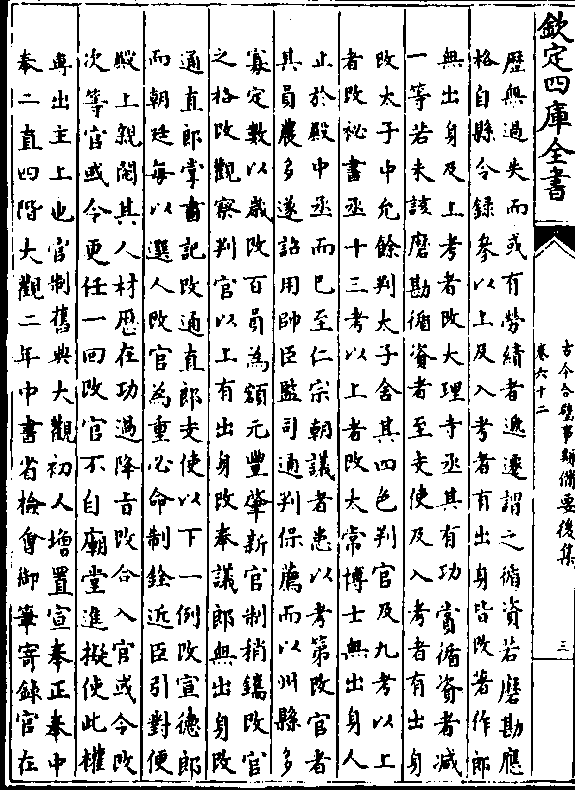 欽定四庫全書
古今合璧事類備要後集
卷六十二
三
歴無過失而或有勞績者遞遷謂之循資若磨勘應
格自縣令録參以上及入考者有出身皆改著作郎
無出身及上考者改大理寺丞其有功賞循資者减
一等若未該磨勘循資者至支使及入考者有出身
改太子中允餘判太子舍其四色判官及九考以上
者改祕書丞十三考以上者改太常博士無出身人
止於殿中丞而已至仁宗朝議者患以考第改官者
其員農多遂詔用帥臣監司通判保薦而以州縣多
寡定數以歲改百員為額元豐肇新官制稍鐫改官
之格改觀察判官以上有出身改奉議郎無出身改
通直郎掌書記改通直郎支使以下一例改宣德郎
而朝廷每以選人改官為重必命制銓近臣引對便
殿上親閱其人材歴在功過降旨改合入官或令改
次等官或令更任一回改官不自廟堂進擬使此權
專出主上也官制舊典大觀初人増置宣奉正奉中
奉二直四階大觀二年中書省檢會御筆寄録官在